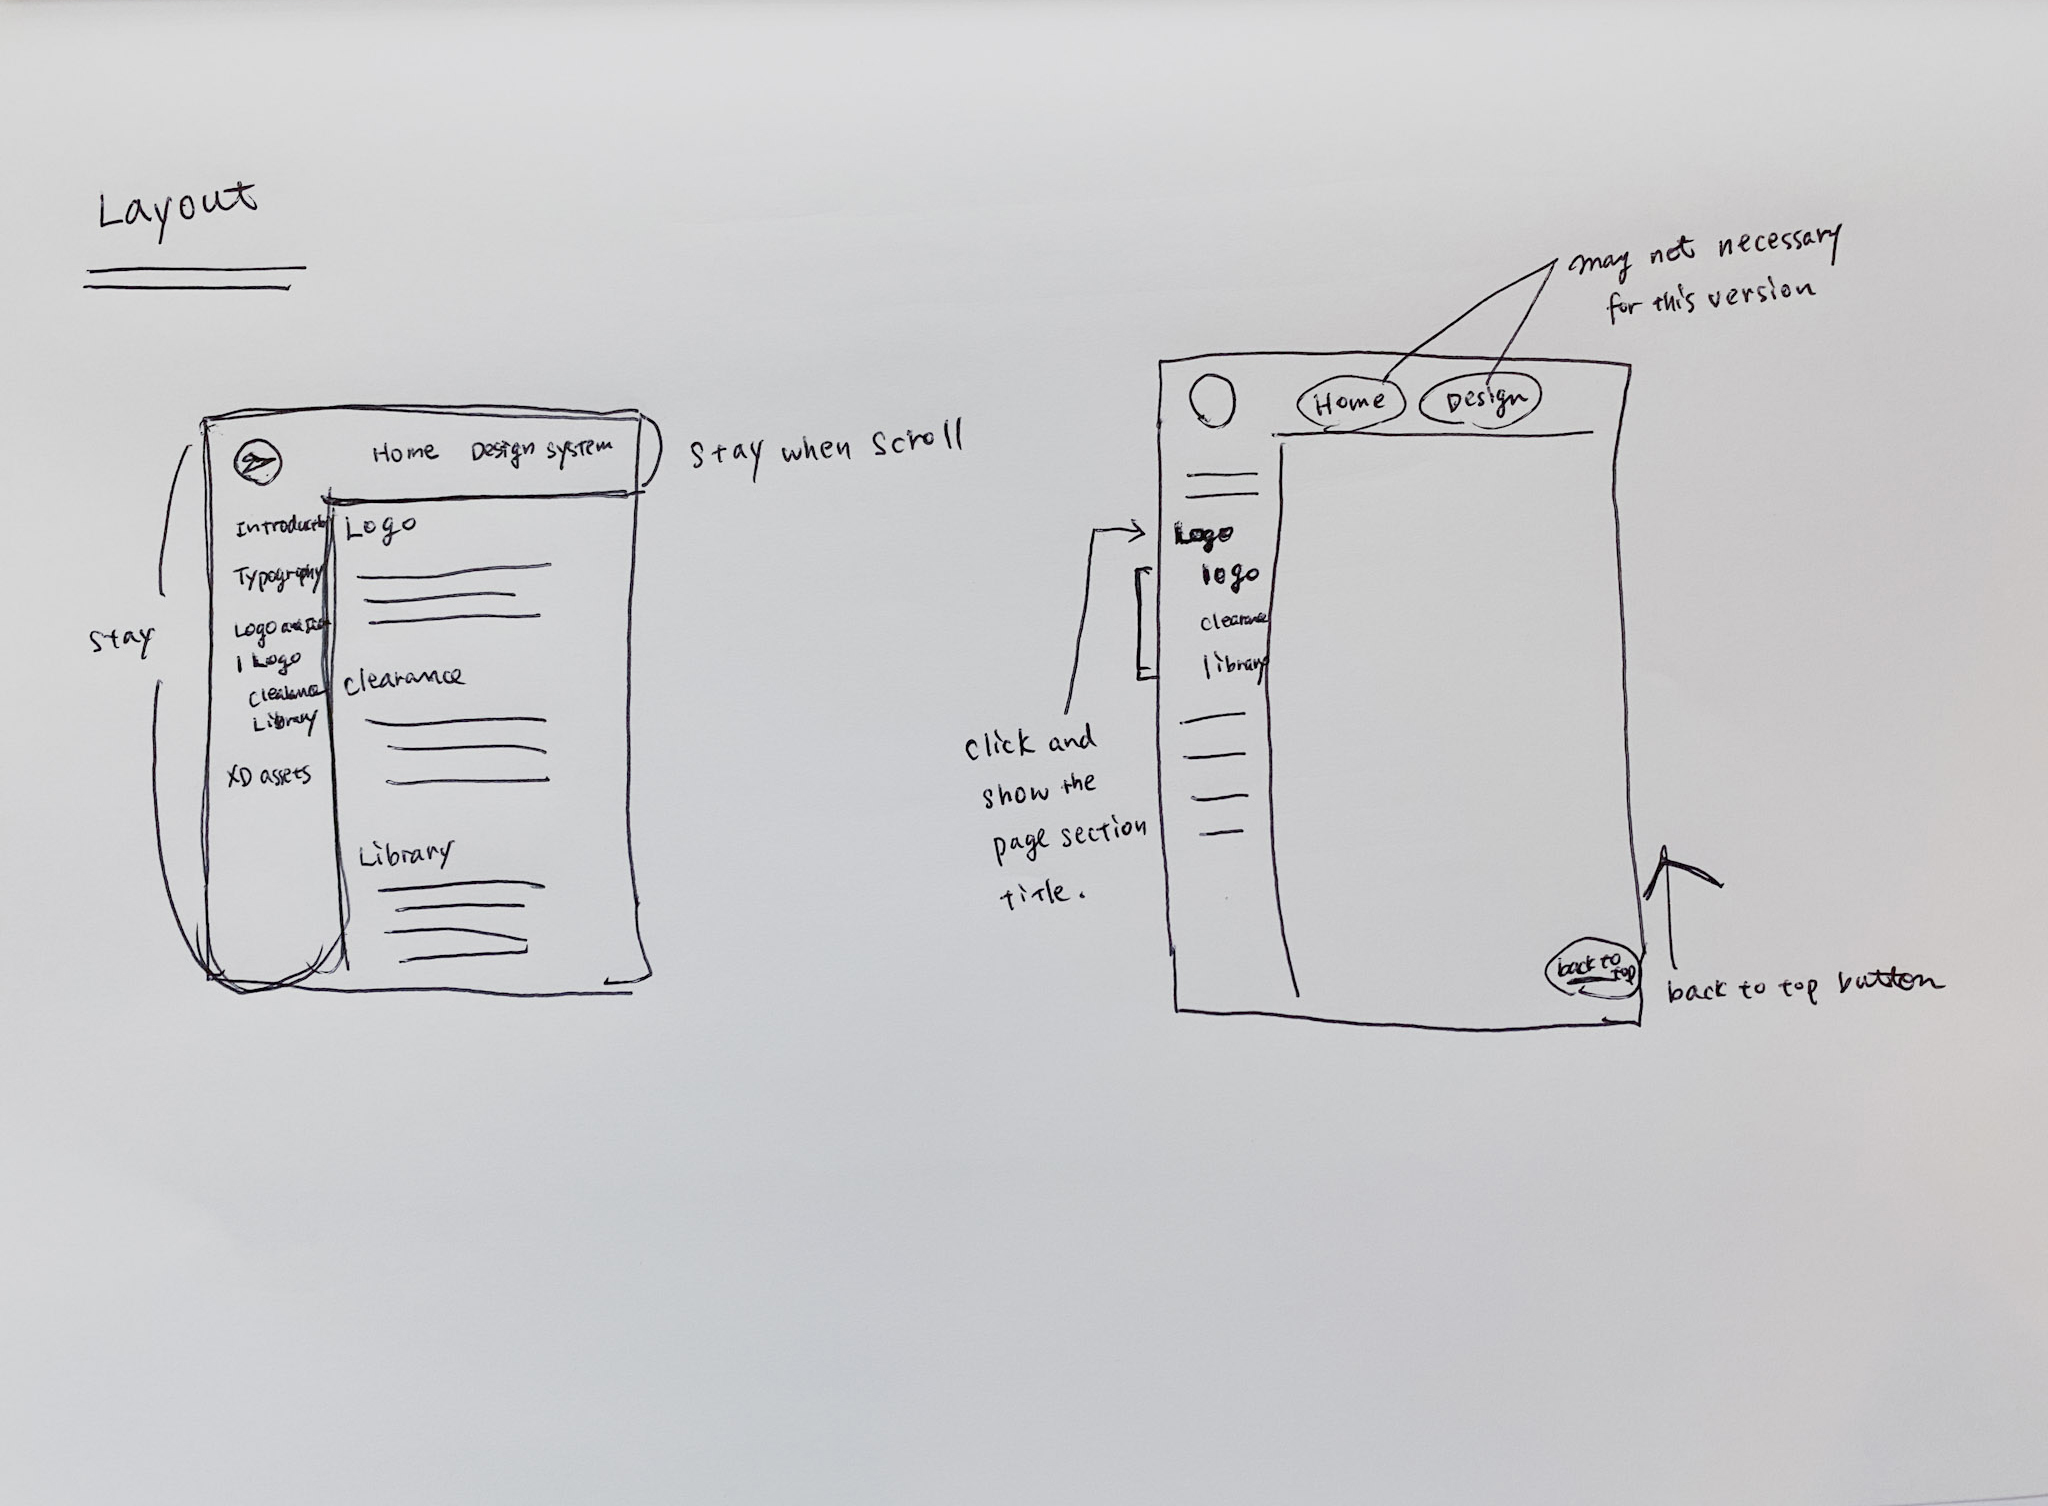 Layout
Home Design system
stay when scroll
stay
Introducti
Typography
Logo
I Logo
Clearance
Library
XD assets
Logo
Clearance
Library
may not necessary
for this version
Home Design
Logo
logo
clearance
library
click and
show the
page section
title.
back to
top
back to top button